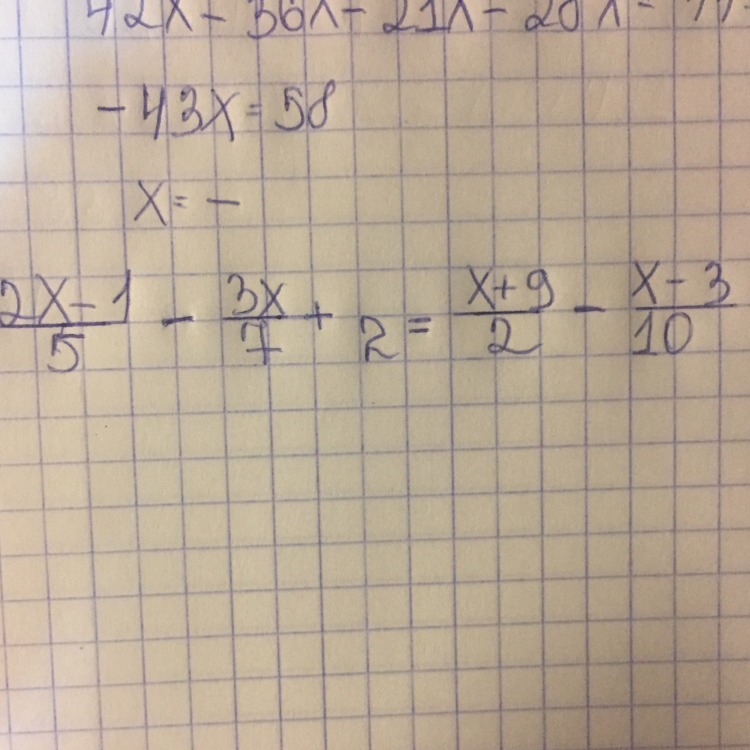 42x - 36x - 21x - 28x =
-43x = 58
x = -
2x-1/5 - 3x/7 + 2 = x+9/2 - x-3/10